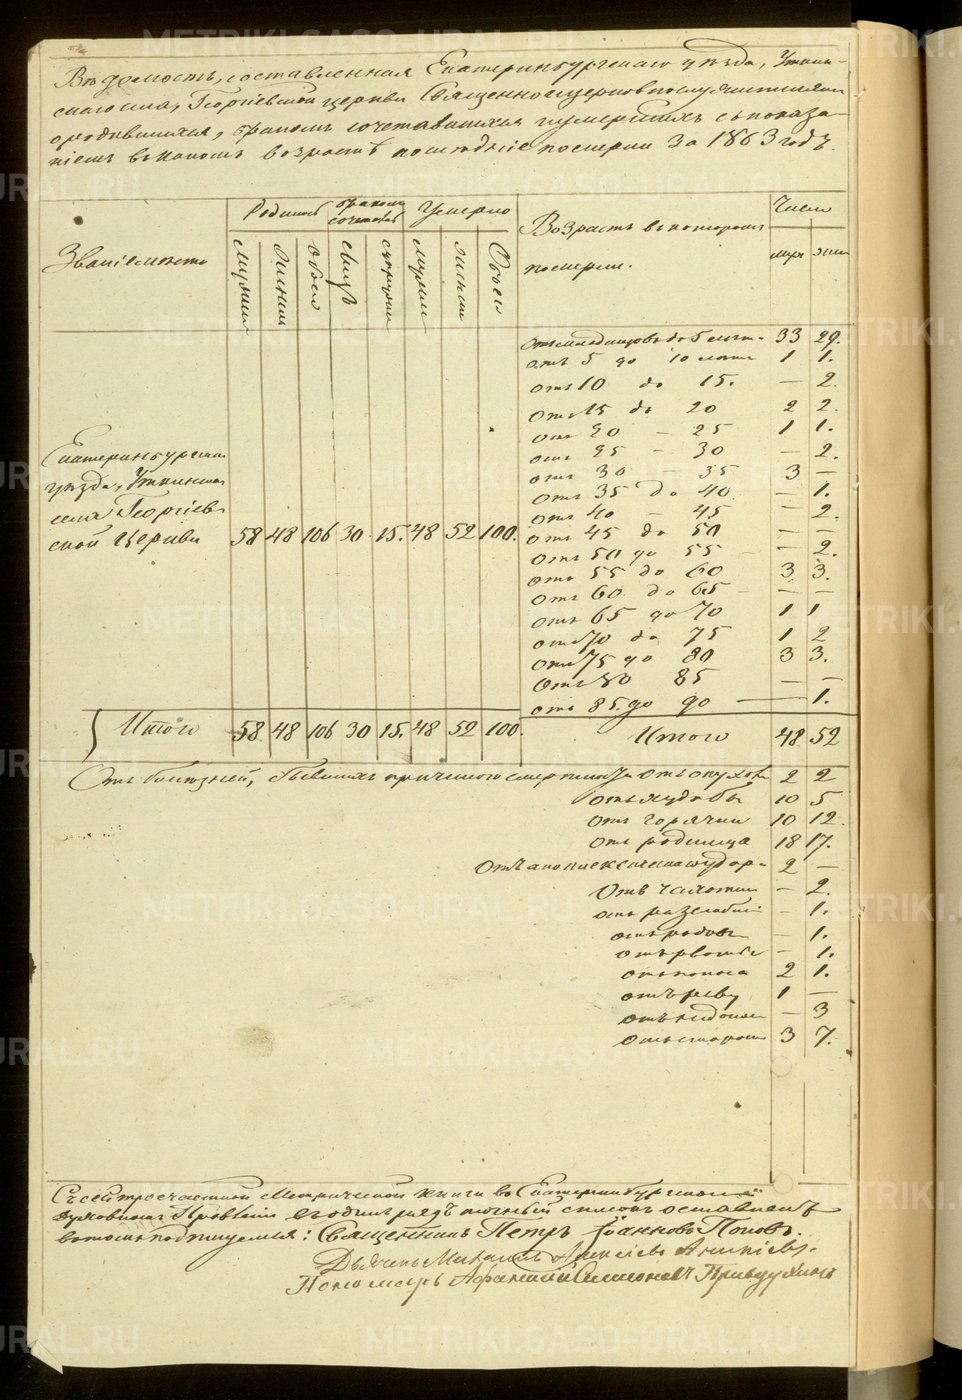 Ведомость, составленная Екатеринбургскаго уезда, Уткин-
скаго села, Георгіевской церкви Священноцерковнослужителями
о родившихся, бракомъ сочетавшихся и умершихъ съ показа-
ніемъ въ какомъ возрасте последніе померли за 1863 годъ.
Родилось бракомъ сочеталось Умерло Число
Возрастъ въ которомъ померли. муж жен
Званіе места мужчин женщин Обоего Лицъ супружес мужчин женщин Обоего
Отъ младенцовъ до 5 летъ 33 29.
отъ 5 до 10 летъ 1 1.
отъ 10 до 15. — 2.
Отъ 15 до 20 2 2.
отъ 20 — 25 1 1.
отъ 25 — 30 — 2.
отъ 30 — 35 3 —
отъ 35 до 40 — 1.
отъ 40 — 45 — 2.
отъ 45 до 50 — —
отъ 50 до 55 — 2.
отъ 55 до 60 3 3.
отъ 60 до 65 — —
отъ 65 до 70 1 1
отъ 70 до 75 1 2
отъ 75 до 80 3 3.
отъ 80 85 — —
отъ 85 до 90 — 1.
Екатеринбургскаго
уезда, Уткинскаго
села Георгіев-
ской церкви 58 48 106 30 15. 48 52 100.
Итого 58 48 106 30 15. 48 52 100. Итого 48 52
Отъ болезней, бывшихъ причиною смертности отъ опухоли 2 2
отъ худобы 10 5
отъ горячки 10 12.
отъ родимца 18 17.
Отъ апоплексическаго удара 2 —
Отъ чахотки — 2.
отъ разслабл — 1.
отъ родовъ — 1.
отъ рвоты — 1.
отъ поноса 2 1.
отъ резу 1 —
— 3
отъ старости 3 7.
Съ сей троечастной Метрической книги въ Екатеринбургское
Духовное Правленіе точный списокъ оставленъ
въ томъ подписуемся: Священникъ Петръ Іоанновъ Поповъ.
Дьячекъ Михаилъ Алексіевъ
Пономарь Афанасій Симеоновъ
METRIKI.GASO-URAL.RU